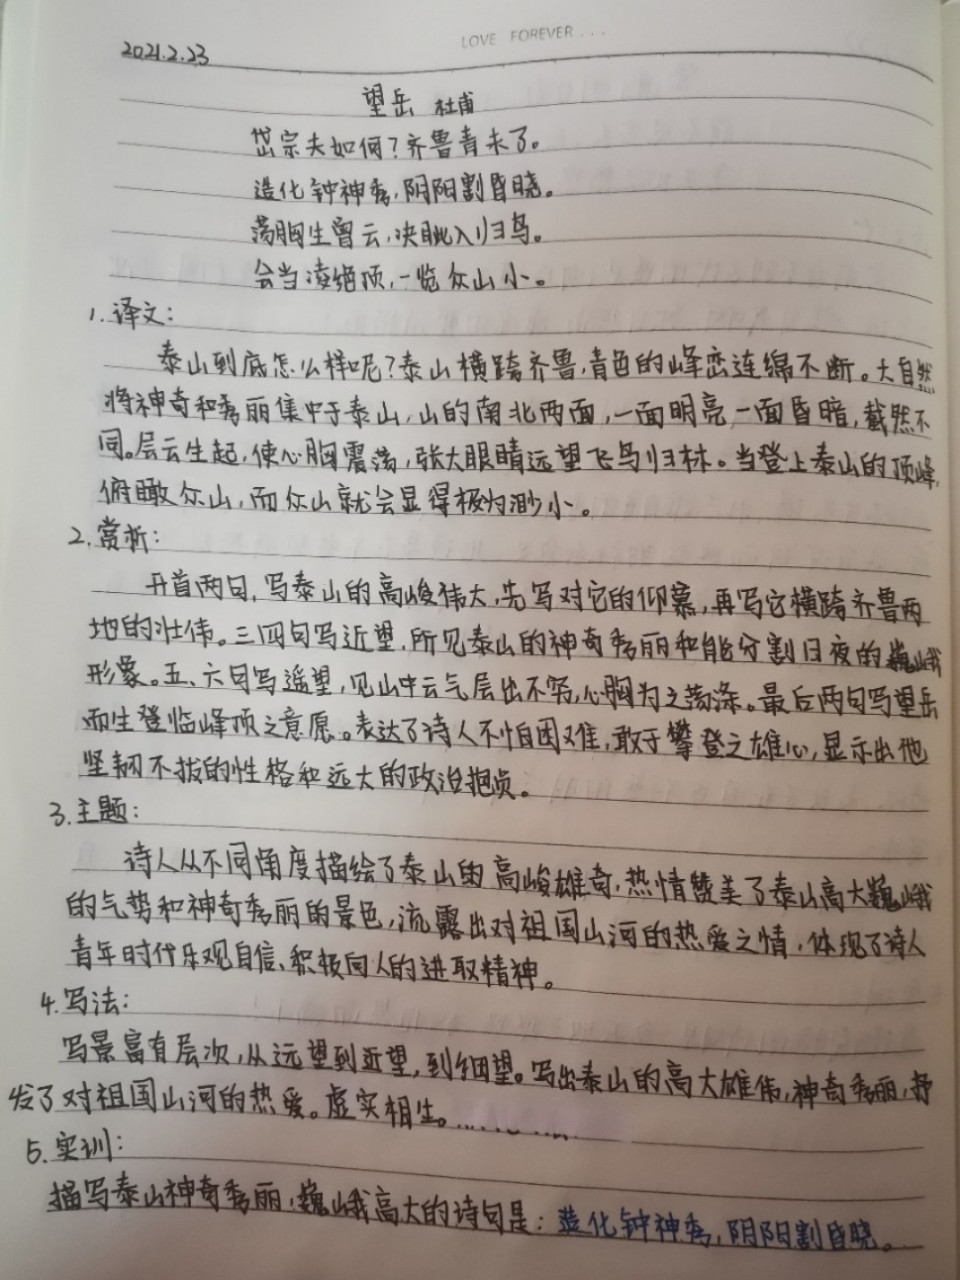 LOVE FOREVER...
2021.2.23
望岳 杜甫
岱宗夫如何？齐鲁青未了。
造化钟神秀，阴阳割昏晓。
荡胸生曾云，决眦入归鸟。
会当凌绝顶，一览众山小。
1.译文：
泰山到底怎么样呢？泰山横跨齐鲁，青色的峰峦连绵不断。大自然
将神奇和秀丽集中于泰山，山的南北两面，一面明亮一面昏暗，截然不
同。层云生起，使心胸震荡，张大眼睛远望飞鸟归林。当登上泰山的顶峰，
俯瞰众山，而众山就会显得极为渺小。
2.赏析：
开首两句，写泰山的高峻伟大，先写对它的仰慕，再写它横跨齐鲁两
地的壮伟。三四句写近望，所见泰山的神奇秀丽和能分割日夜的巍峨
形象。五、六句写遥望，见山中云气层出不穷，心胸为之荡涤。最后两句写望岳
而生登临峰顶之意愿。表达了诗人不怕困难，敢于攀登之雄心，显示出他
坚韧不拔的性格和远大的政治抱负。
3.主题：
诗人从不同角度描绘了泰山的高峻雄奇，热情赞美了泰山高大巍峨
的气势和神奇秀丽的景色，流露出对祖国山河的热爱之情，体现了诗人
青年时代乐观自信、积极向人的进取精神。
4.写法：
写景富有层次，从远望到近望，到细望。写出泰山的高大雄伟，神奇秀丽，抒
发了对祖国山河的热爱。虚实相生。......
5.实训：
描写泰山神奇秀丽，巍峨高大的诗句是：造化钟神秀，阴阳割昏晓。